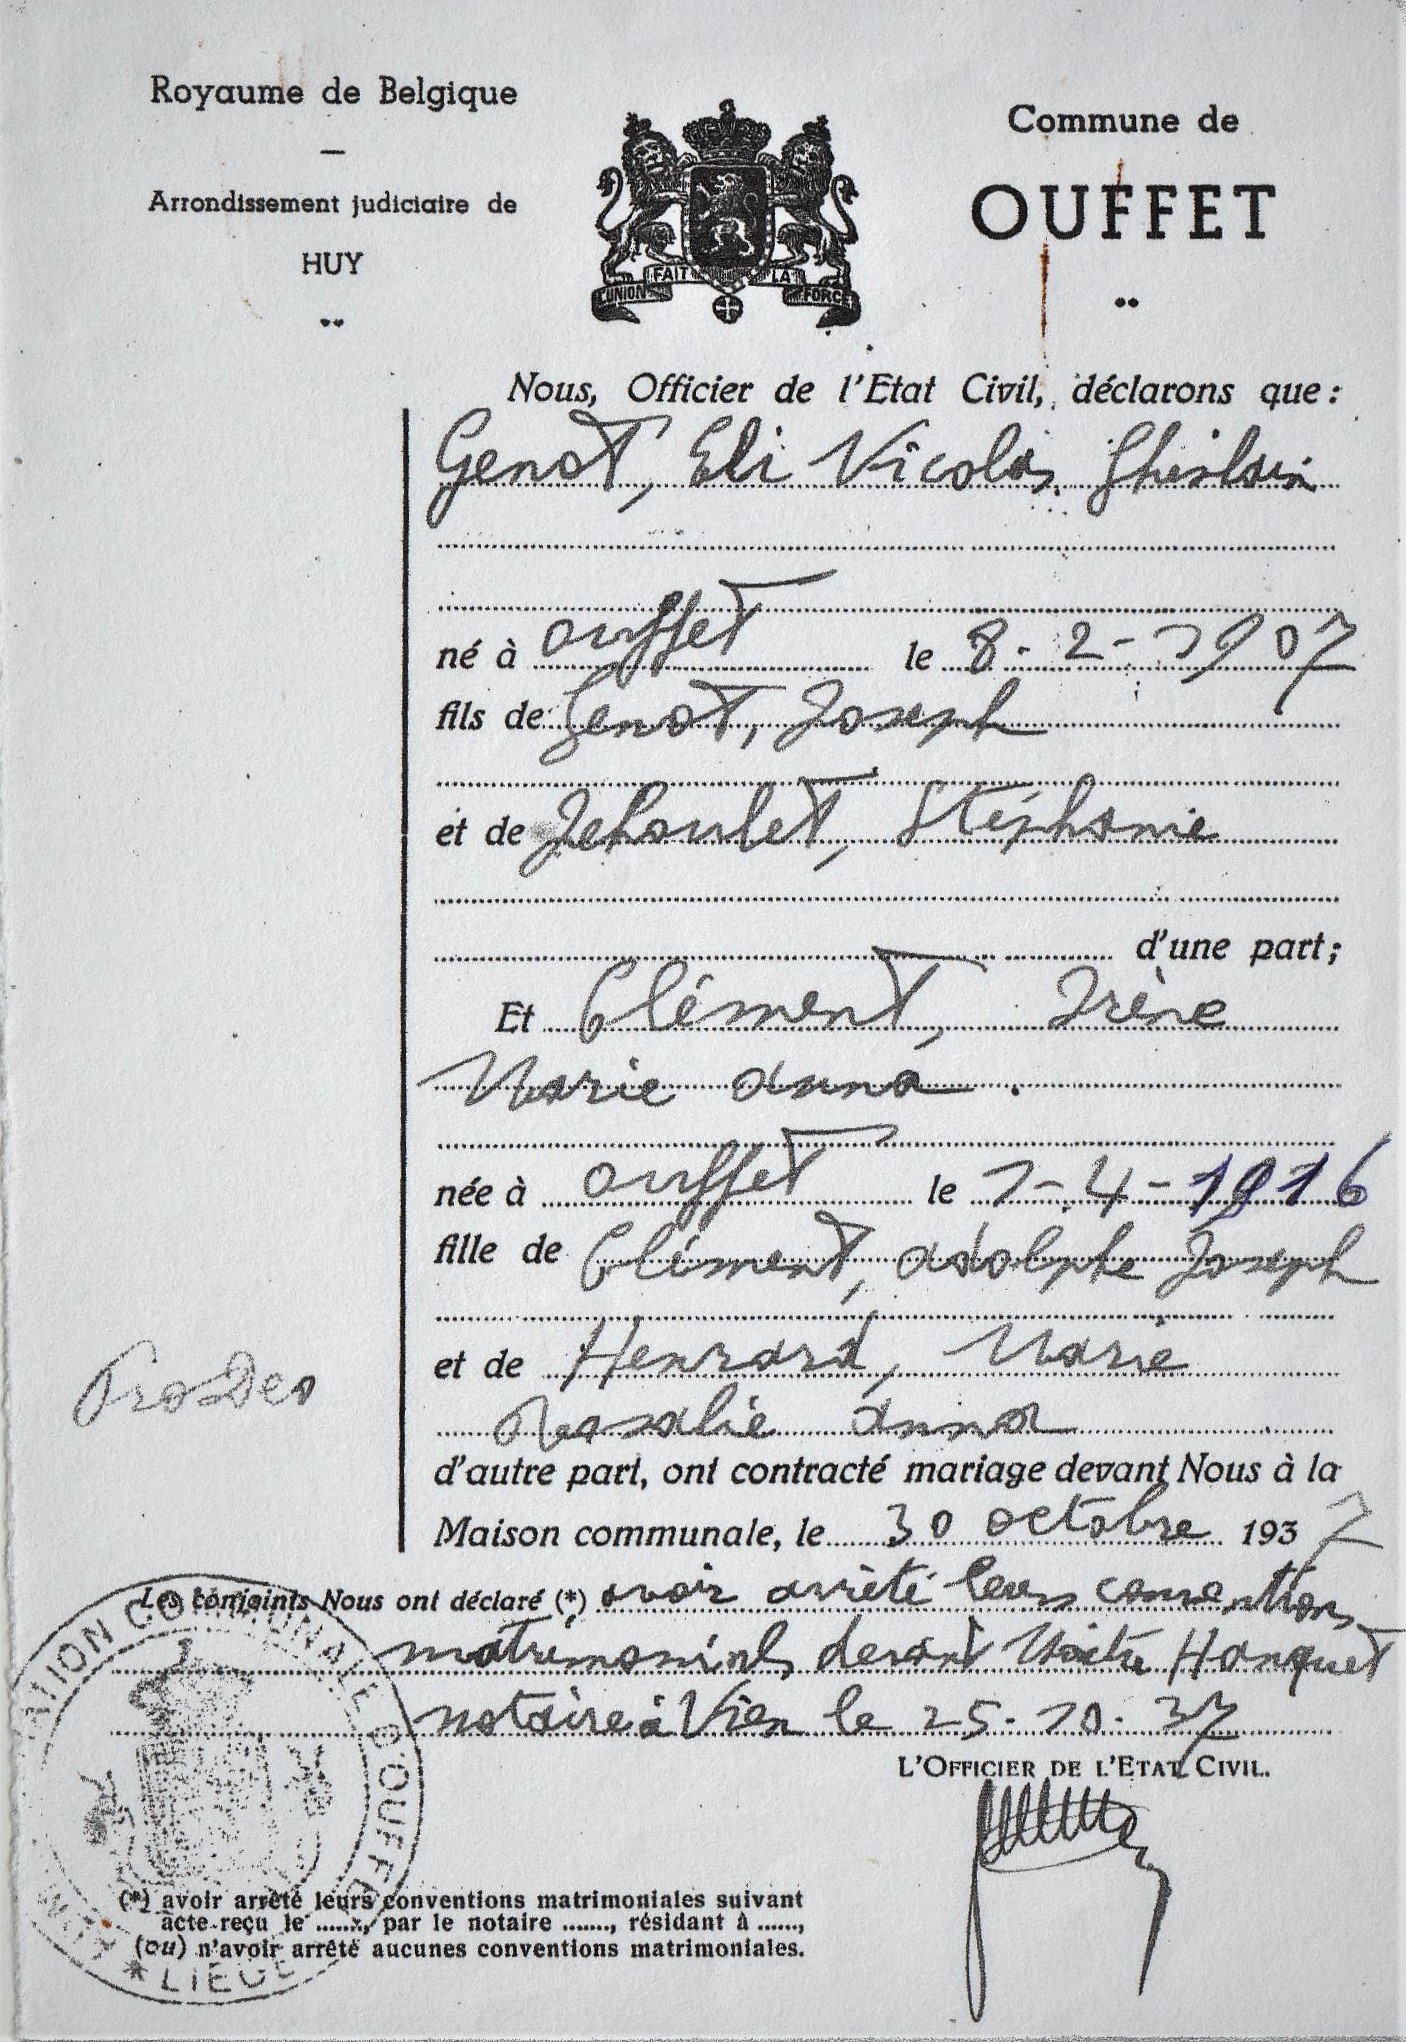 Royaume de Belgique
Arrondissement judiciaire de
HUY
L'UNION FAIT LA FORCE
Commune de
OUFFET
Nous, Officier de l'Etat Civil, déclarons que :
Genot, Eli Nicolas Ghislain
né à Ouffet le 8-2-1907
fils de Genot, Joseph
et de Jehoulet, Stéphanie
d'une part ;
Et Clément, Irène
Marie Anna.
née à Ouffet le 1-4-1916
fille de Clément, Adolphe Joseph
et de Henrard, Marie
Rosalie Anna
Pro Deo
d'autre part, ont contracté mariage devant Nous à la
Maison communale, le 30 octobre 1937
Les conjoints Nous ont déclaré (*) avoir arrêté leurs conventions
matrimoniales devant Maître Hanquet
notaire à Vien le 25-10-37
L'OFFICIER DE L'ETAT CIVIL.
(*) avoir arrêté leurs conventions matrimoniales suivant
acte reçu le ......, par le notaire ......., résidant à ......,
(ou) n'avoir arrêté aucunes conventions matrimoniales.
COMMUNALE D'OUFFET
* LIEGE